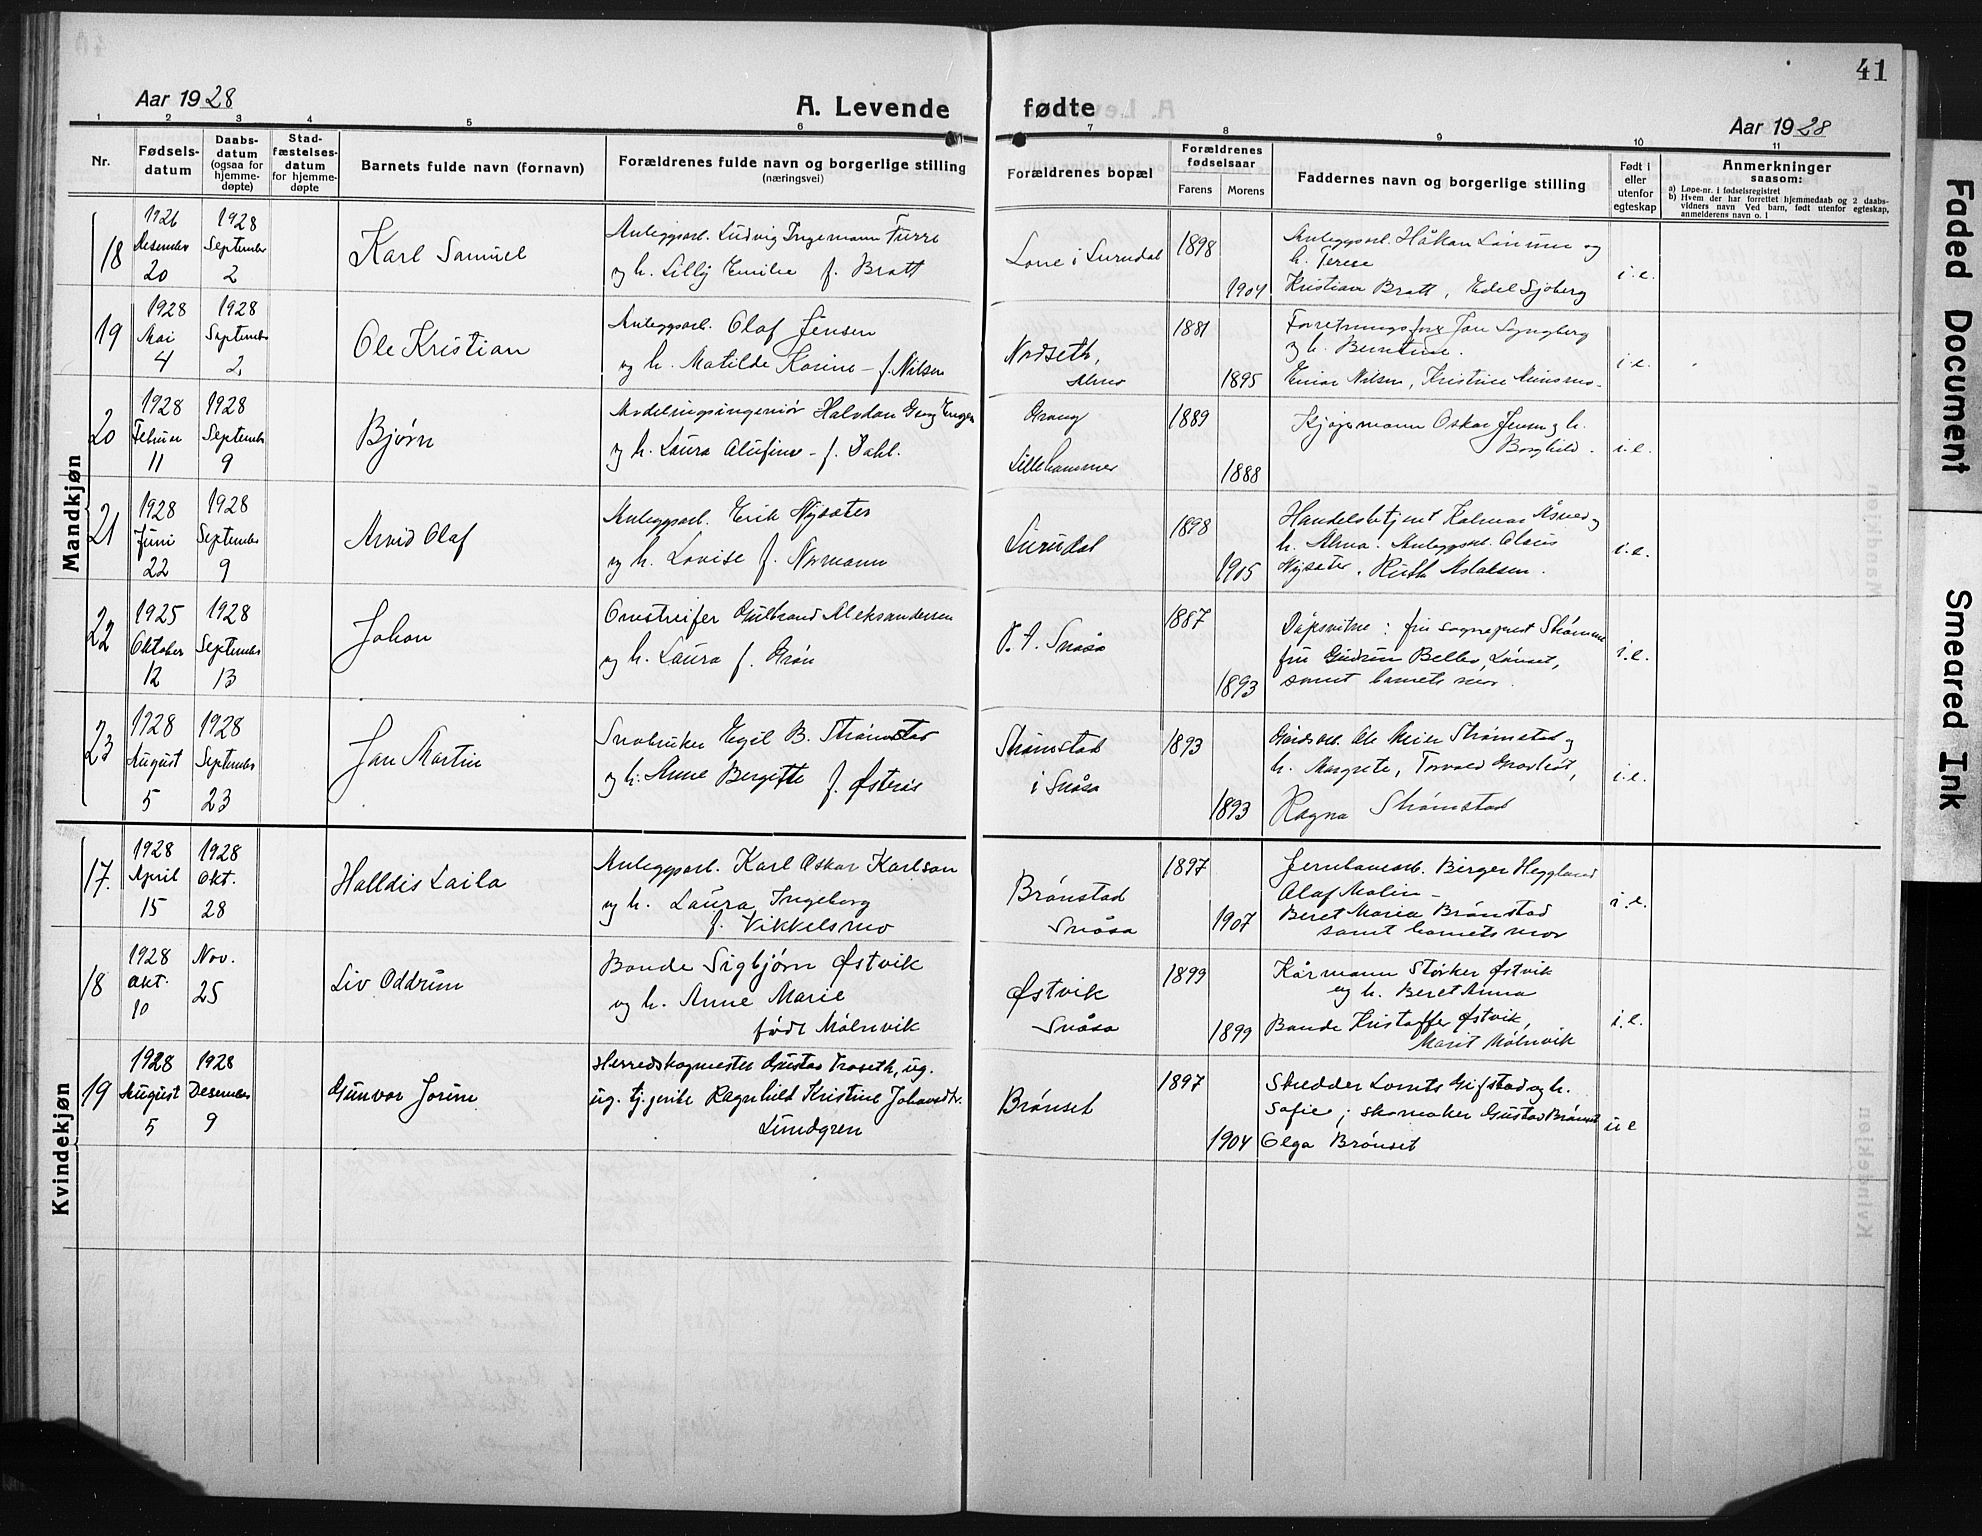 41
Aar 1928
A. Levende fødte
Aar 1928
1 2 3 4 5 6 7 8 9 10 11
Nr.
Fødsels-
datum
Daabs-
datum
(ogsaa for
hjemme-
døpte)
Stad-
fæstelses-
datum
for hjemme-
døpte
Barnets fulde navn (fornavn)
Forældrenes fulde navn og borgerlige stilling
(næringsvei)
Forældrenes bopæl
Forældrenes
fødselsaar
Farens
Morens
Faddernes navn og borgerlige stilling
Født i
eller
utenfor
egteskap
Anmerkninger
saasom:
a) Løpe-nr. i fødselsregistret
b) Hvem der har forrettet hjemmedaab og 2 daabs-
vidners navn Ved barn, født utenfor egteskap,
anmelderens navn o. l
Mandkjøn
18
1926
Desember
20
1928
September
2
Karl Samuel
Anleggsarb. Ludvig Ingemann Furre
og h. Lilly Emilie f. Bratt
i Lurudal
1898
1904
Anleggsarb. Håkon og
h. Terese
Kristian Bratt, Edel Sjøberg
i.e.
19
1928
Mai
4
1928
September
2
Ole Kristian
Anleggsarb. Olaf Jensen
og h. Matilde Karine - f. Nilsen
Nordseth,
1881
1895
Forretningsfører Jon
og h. Berntine.
Einar Nilsen, Kristine
i e.
20
1928
Februar
11
1928
September
9
Bjørn
Avdelingsingeniør Halvdan Georg Enger
og h. Laura - f. Dahl.
Lillehammer
1889
1888
Kjøpmann Oskar Jensen og h.
Borghild.
i.e.
21
1928
Juni
22
1928
September
9
Arvid Olaf
Anleggsarb. Erik Nysæter
og h. Lovise f. Normann
Lurudal
1898
1905
Handelsbetjent og
h. Alma. Anleggsarb.
Nysæter, Ruth
i.e.
22
1925
Oktober
12
1928
September
13
Johan
Omstreifer Gulbrand Aleksandersen
og h. Laura f. Grøn
P. t. Snåsa
1887
1893
Dåpsvitne: fru sogneprest
fru Gudrun
samt barnets mor.
i.e.
23
1928
August
5
1928
September
23
Jan Martin
Småbruker Egil B. Strømstad
og h. Anne Bergitte f. Østerås
Strømstad
i Snåsa
1893
1893
Gårdsarb. Ole Meier Strømstad og
h. Margrete, Torvald
Ragna Strømstad
i.e.
Kvindekjøn
17.
1928
April
15
1928
Okt.
28
Halldis Laila
Anleggsarb. Karl Oskar Karlson
og h. Laura Ingeborg
f. Vikkelsmo
Brønstad
Snåsa
1897
1907
Jernbanearb. Birger Heggland
Olaf Molin -
Beret Maria Brønstad
samt barnets mor
i.e.
18
1928
Okt.
10
Nov.
25
Liv Oddrun
Bonde Sigbjørn Østvik
og h. Anne Marie
født Mølnvik
Østvik
Snåsa
1899
1899
Kårmann Størker Østvik
og h. Beret Anna
Bonde Kristoffer Østvik,
Marit Mølnvik
i.e.
19
1928
August
5
1928
Desember
9
Gunvor Jorun
Herredskogmester Gustav Traseth, ug.
ug. tj.jente Ragnhild Kristine Johansdtr.
Lundgren
Brønset
1897
1904
Skredder Lornts Gifstad og h.
Sofie; skomaker Gustav Brønset
Olga Brønset
u e
Faded Document
Smeared Ink